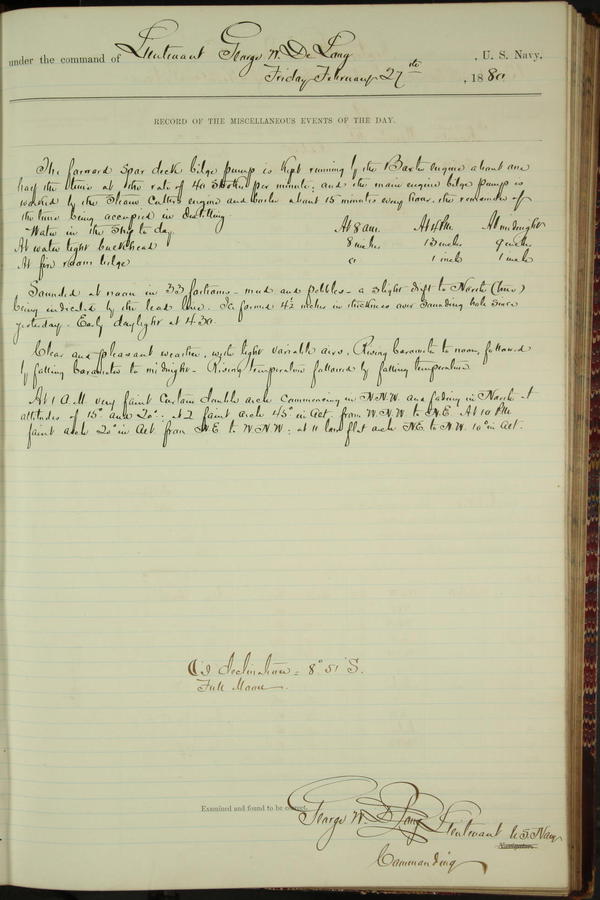 under the command of Lieutenant George W. De Long, U. S. Navy.
Friday February 27th, 1880
RECORD OF THE MISCELLANEOUS EVENTS OF THE DAY.
The forward spar deck bilge pump is kept running by the Baxter engine about one
half the time at the rate of 40 strokes per minute; and the main engine bilge pump is
worked by the Steam Cutters engine and boiler about 15 minutes every hour, the remainder of
the time being occupied in distilling.
Water in the ship to day. At 8 a.m. At 4 P.M. At midnight
At water tight bulkhead 8 inches 13 inches 9 inches
At fire room bilge 0 1 inch 1 inch
Sounded at noon in 33 fathoms - mud and pebbles - a slight drift to North (true)
being indicated by the lead line. Ice formed 4½ inches in thickness over sounding hole since
yesterday. Early daylight at 4.30.
Clear and pleasant weather, with light variable airs. Rising barometer to noon, followed
by falling barometer to midnight. Rising temperature followed by falling temperature.
At 1 A.M. very faint curtain double arch commencing in N.N.W. and fading in North at
altitudes of 15° and 20°: at 2 faint arch 45° in alt. from W.N.W. to N.E. At 10 P.M.
faint arch 20° in alt. from N.E. to W.N.W: at 11 low flat arch N.E. to N.W. 10° in alt.
☾'s declination = 8° 51' S.
Full Moon.
Examined and found to be correct.
George W. De Long Lieutenant U.S. Navy
Navigator.
Commanding